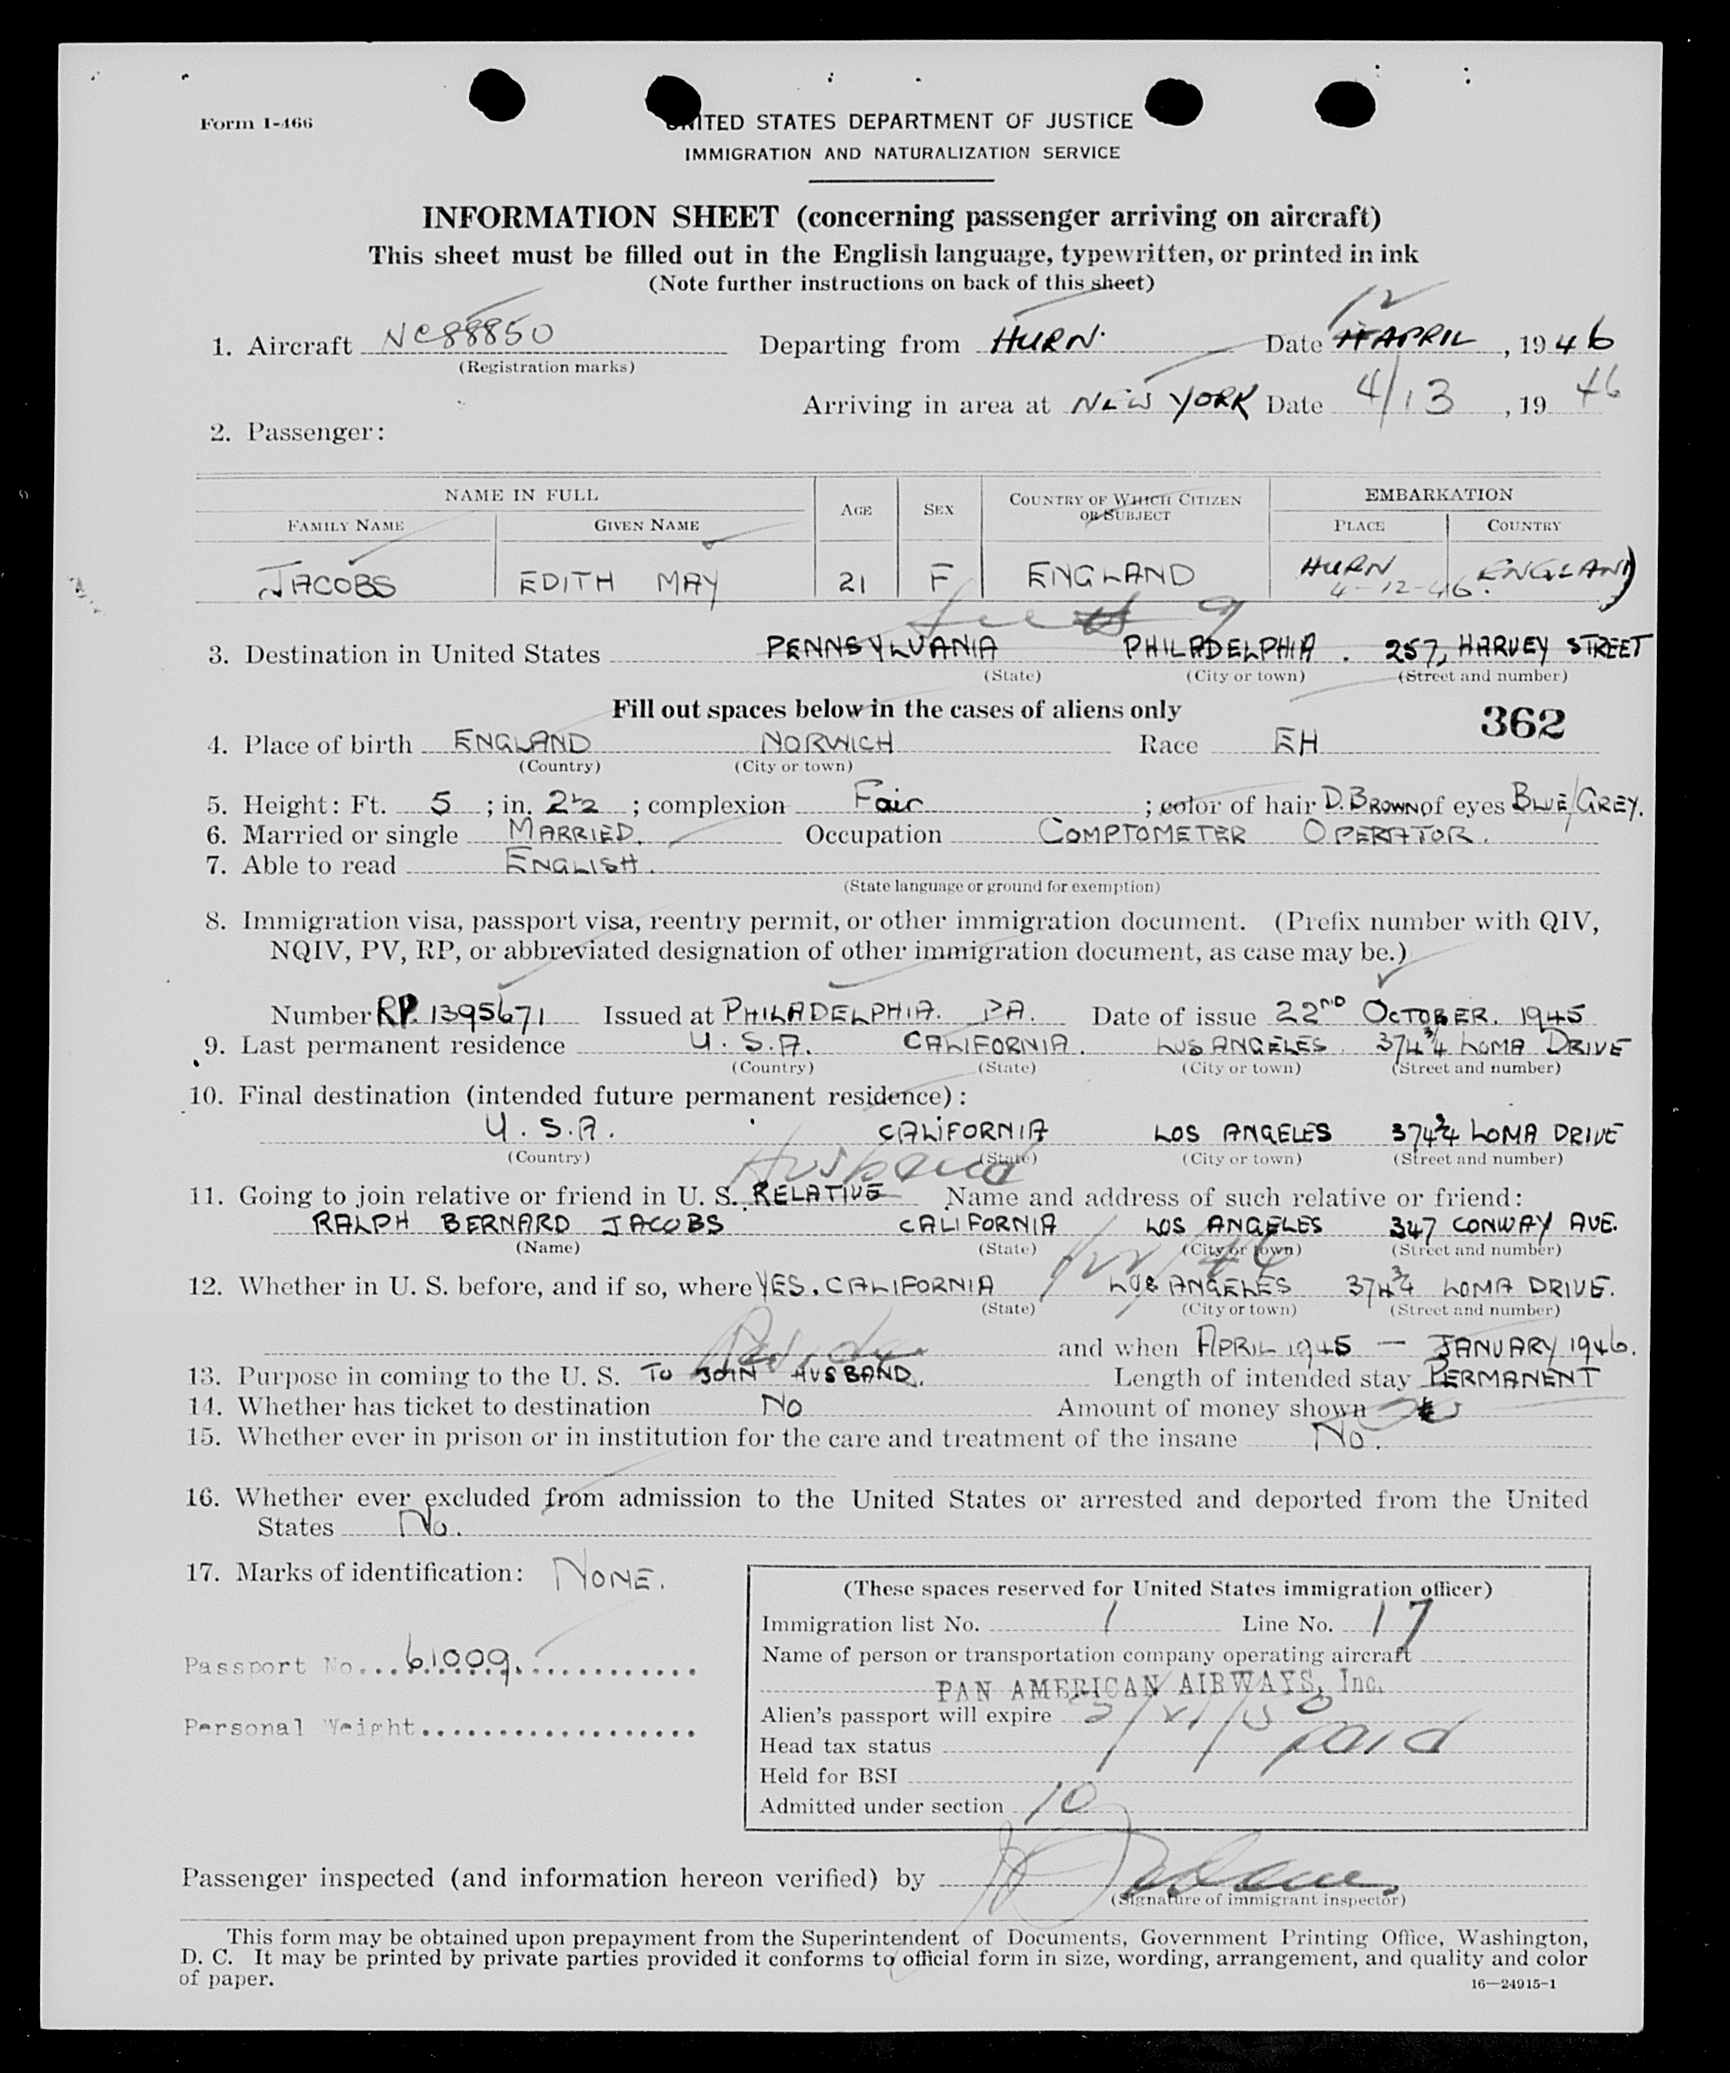 Form I-466
UNITED STATES DEPARTMENT OF JUSTICE
IMMIGRATION AND NATURALIZATION SERVICE
INFORMATION SHEET (concerning passenger arriving on aircraft)
This sheet must be filled out in the English language, typewritten, or printed in ink
(Note further instructions on back of this sheet)
12
1. Aircraft NC88850 Departing from HURN. Date APRIL, 1946
(Registration marks)
Arriving in area at NEW YORK Date 4/13, 19 46
2. Passenger:
NAME IN FULL AGE SEX COUNTRY OF WHICH CITIZEN OR SUBJECT EMBARKATION
FAMILY NAME GIVEN NAME PLACE COUNTRY
JACOBS EDITH MAY 21 F ENGLAND HURN ENGLAND
4-12-46.
see 9
3. Destination in United States PENNSYLVANIA PHILADELPHIA. 257, HARVEY STREET
(State) (City or town) (Street and number)
Fill out spaces below in the cases of aliens only 362
4. Place of birth ENGLAND NORWICH Race EH
(Country) (City or town)
5. Height: Ft. 5; in. 2½; complexion Fair; color of hair D. BROWN of eyes BLUE/GREY.
6. Married or single MARRIED. Occupation COMPTOMETER OPERATOR.
7. Able to read ENGLISH.
(State language or ground for exemption)
8. Immigration visa, passport visa, reentry permit, or other immigration document. (Prefix number with QIV,
NQIV, PV, RP, or abbreviated designation of other immigration document, as case may be.)
Number RP. 1395671 Issued at PHILADELPHIA. PA. Date of issue 22ND OCTOBER. 1945
9. Last permanent residence U.S.A. CALIFORNIA. LOS ANGELES 374¾ LOMA DRIVE
(Country) (State) (City or town) (Street and number)
10. Final destination (intended future permanent residence):
U.S.A. CALIFORNIA LOS ANGELES 374¾ LOMA DRIVE
(Country) (State) (City or town) (Street and number)
Husband
11. Going to join relative or friend in U. S. RELATIVE Name and address of such relative or friend:
RALPH BERNARD JACOBS CALIFORNIA LOS ANGELES 347 CONWAY AVE.
(Name) (State) (City or town) (Street and number)
12. Whether in U. S. before, and if so, where YES. CALIFORNIA LOS ANGELES 374¾ LOMA DRIVE.
(State) (City or town) (Street and number)
and when APRIL 1945 — JANUARY 1946.
Reside
13. Purpose in coming to the U. S. TO JOIN HUSBAND. Length of intended stay PERMANENT
14. Whether has ticket to destination NO Amount of money shown
15. Whether ever in prison or in institution for the care and treatment of the insane NO.
16. Whether ever excluded from admission to the United States or arrested and deported from the United
States NO.
17. Marks of identification: NONE.
(These spaces reserved for United States immigration officer)
Immigration list No. 1 Line No. 17
Name of person or transportation company operating aircraft
PAN AMERICAN AIRWAYS, Inc.
Passport No. 61009.
Alien's passport will expire
Personal Weight
Head tax status paid
Held for BSI
Admitted under section 10
Passenger inspected (and information hereon verified) by
(Signature of immigrant inspector)
This form may be obtained upon prepayment from the Superintendent of Documents, Government Printing Office, Washington,
D. C. It may be printed by private parties provided it conforms to official form in size, wording, arrangement, and quality and color
of paper.
16—24915-1